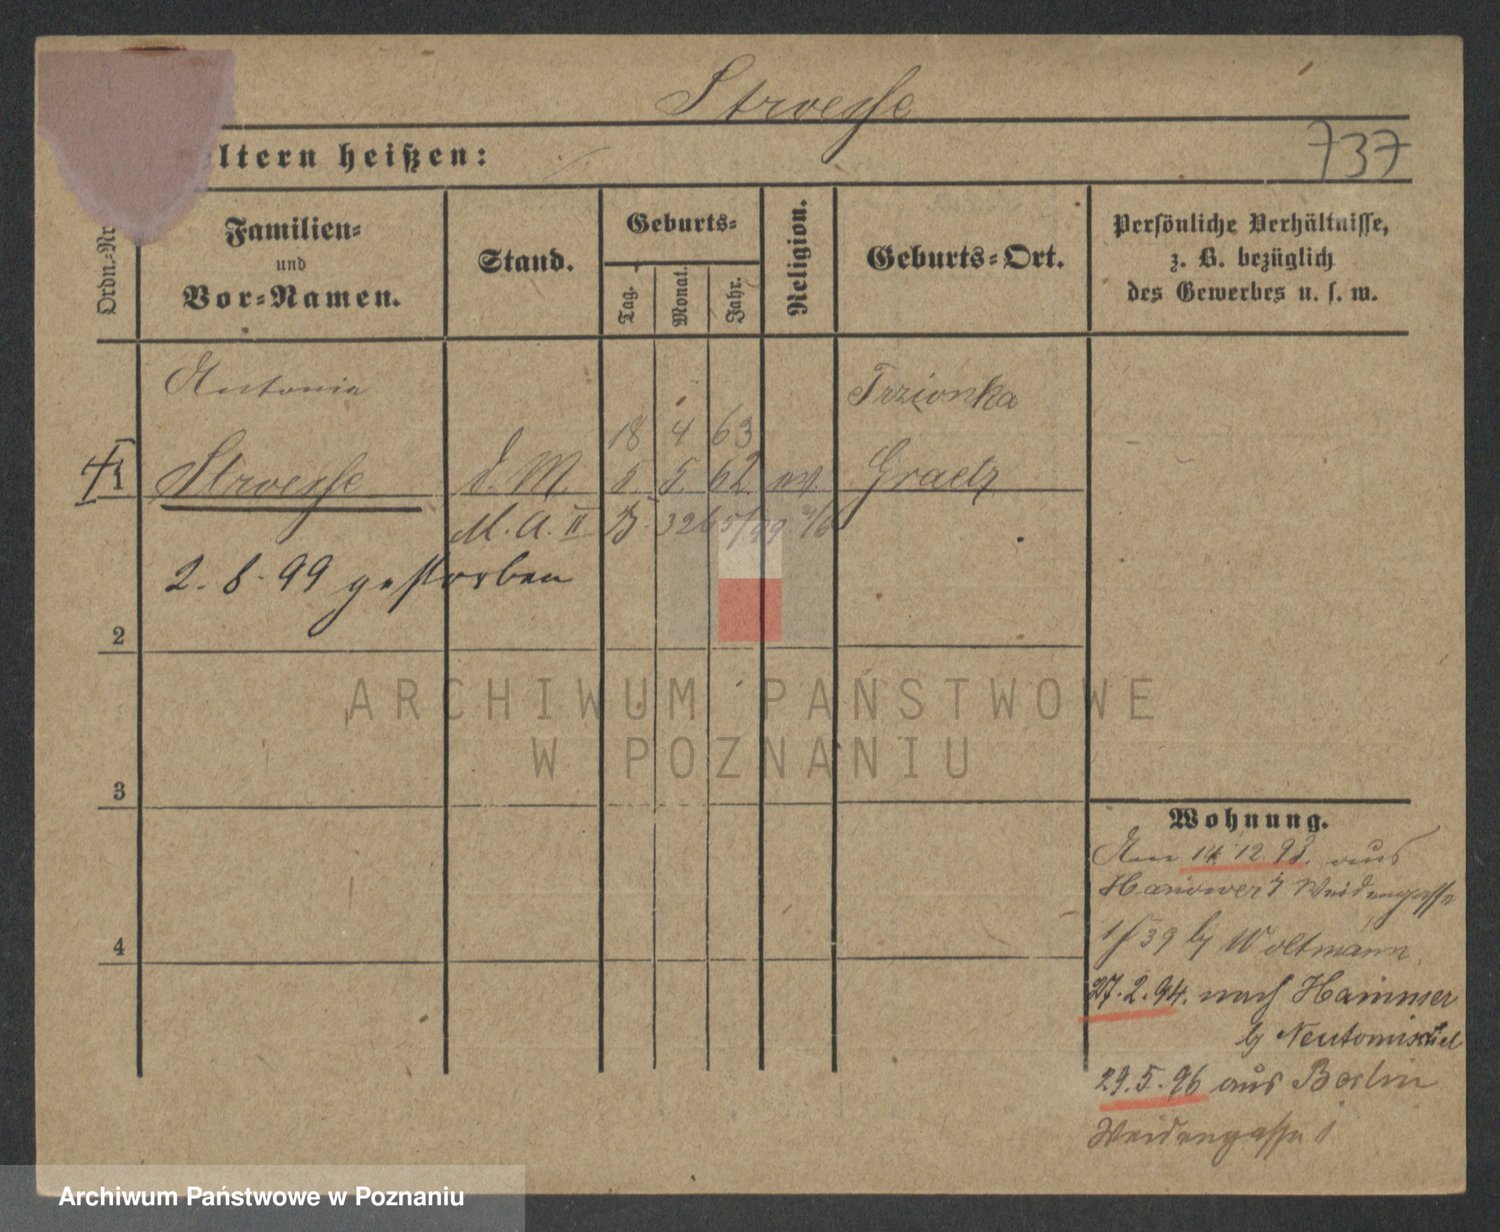 Stroesse
eltern heißen:
737
Ordn.-Nr.
Familien-
und
Vor-Namen.
Stand.
Geburts-
Tag.
Monat.
Jahr.
Religion.
Geburts-Ort.
Persönliche Verhältnisse,
z. B. bezüglich
des Gewerbes u. s. w.
Antonia
Trzionka
18 4 63
1
Stroesse
d. M.
5 5. 62 ev.
Graetz
M. A. II B. 3265/99
2. 8. 99 gestorben
2
3
4
Wohnung.
Am 14. 12. 93. aus
Hanower Weidengasse
39 by Woltmann.
27. 2. 94. nach Hammer
by Neutomischel
29. 5. 96 aus Berlin
Weidengasse
ARCHIWUM PAŃSTWOWE
W POZNANIU
Archiwum Państwowe w Poznaniu